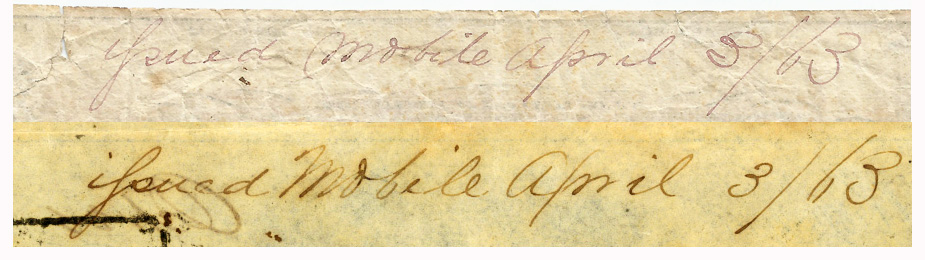 issued Mobile April 3/63
issued Mobile April 3/63